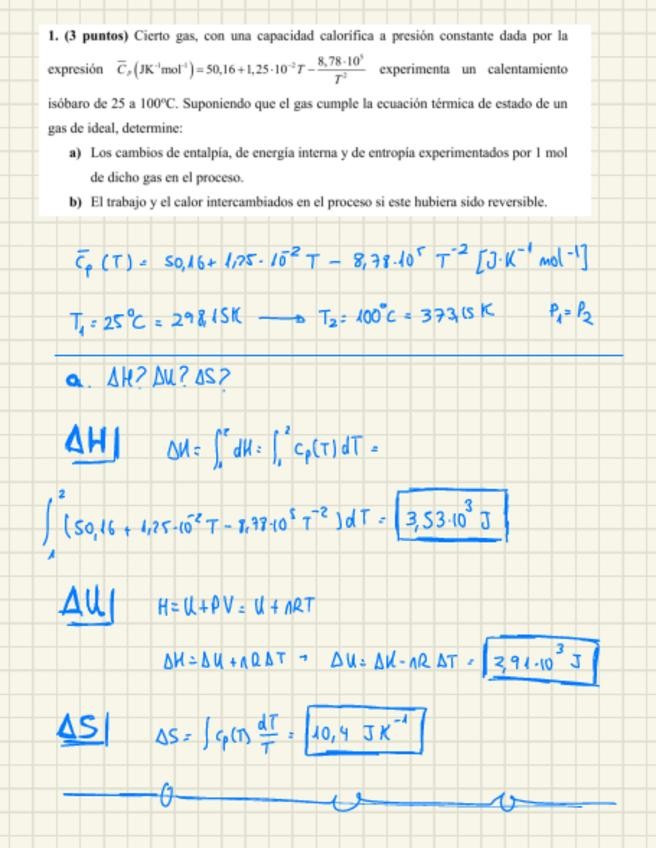 1. (3 puntos) Cierto gas, con una capacidad calorífica a presión constante dada por la
expresión C̅ₚ(JK⁻¹mol⁻¹)=50,16+1,25·10⁻²T−8,78·10⁵/T² experimenta un calentamiento
isóbaro de 25 a 100ºC. Suponiendo que el gas cumple la ecuación térmica de estado de un
gas de ideal, determine:
a) Los cambios de entalpía, de energía interna y de entropía experimentados por 1 mol
de dicho gas en el proceso.
b) El trabajo y el calor intercambiados en el proceso si este hubiera sido reversible.
C̅p (T) = 50,16 + 1,25·10⁻² T − 8,78·10⁵ T⁻² [J·K⁻¹ mol⁻¹]
T₁ = 25°C = 298,15K → T₂ = 100°C = 373,15 K P₁=P₂
a. ΔH? ΔU? ΔS?
ΔH| ΔH = ∫₁² dH = ∫₁² Cp(T) dT =
∫₁² (50,16 + 1,25·10⁻² T − 8,78·10⁵ T⁻²) dT = 3,53·10³ J
ΔU| H=U+PV = U + nRT
ΔH = ΔU + nRΔT → ΔU = ΔH − nR ΔT = 2,91·10³ J
ΔS| ΔS = ∫ Cp(T) dT/T = 10,4 J K⁻¹